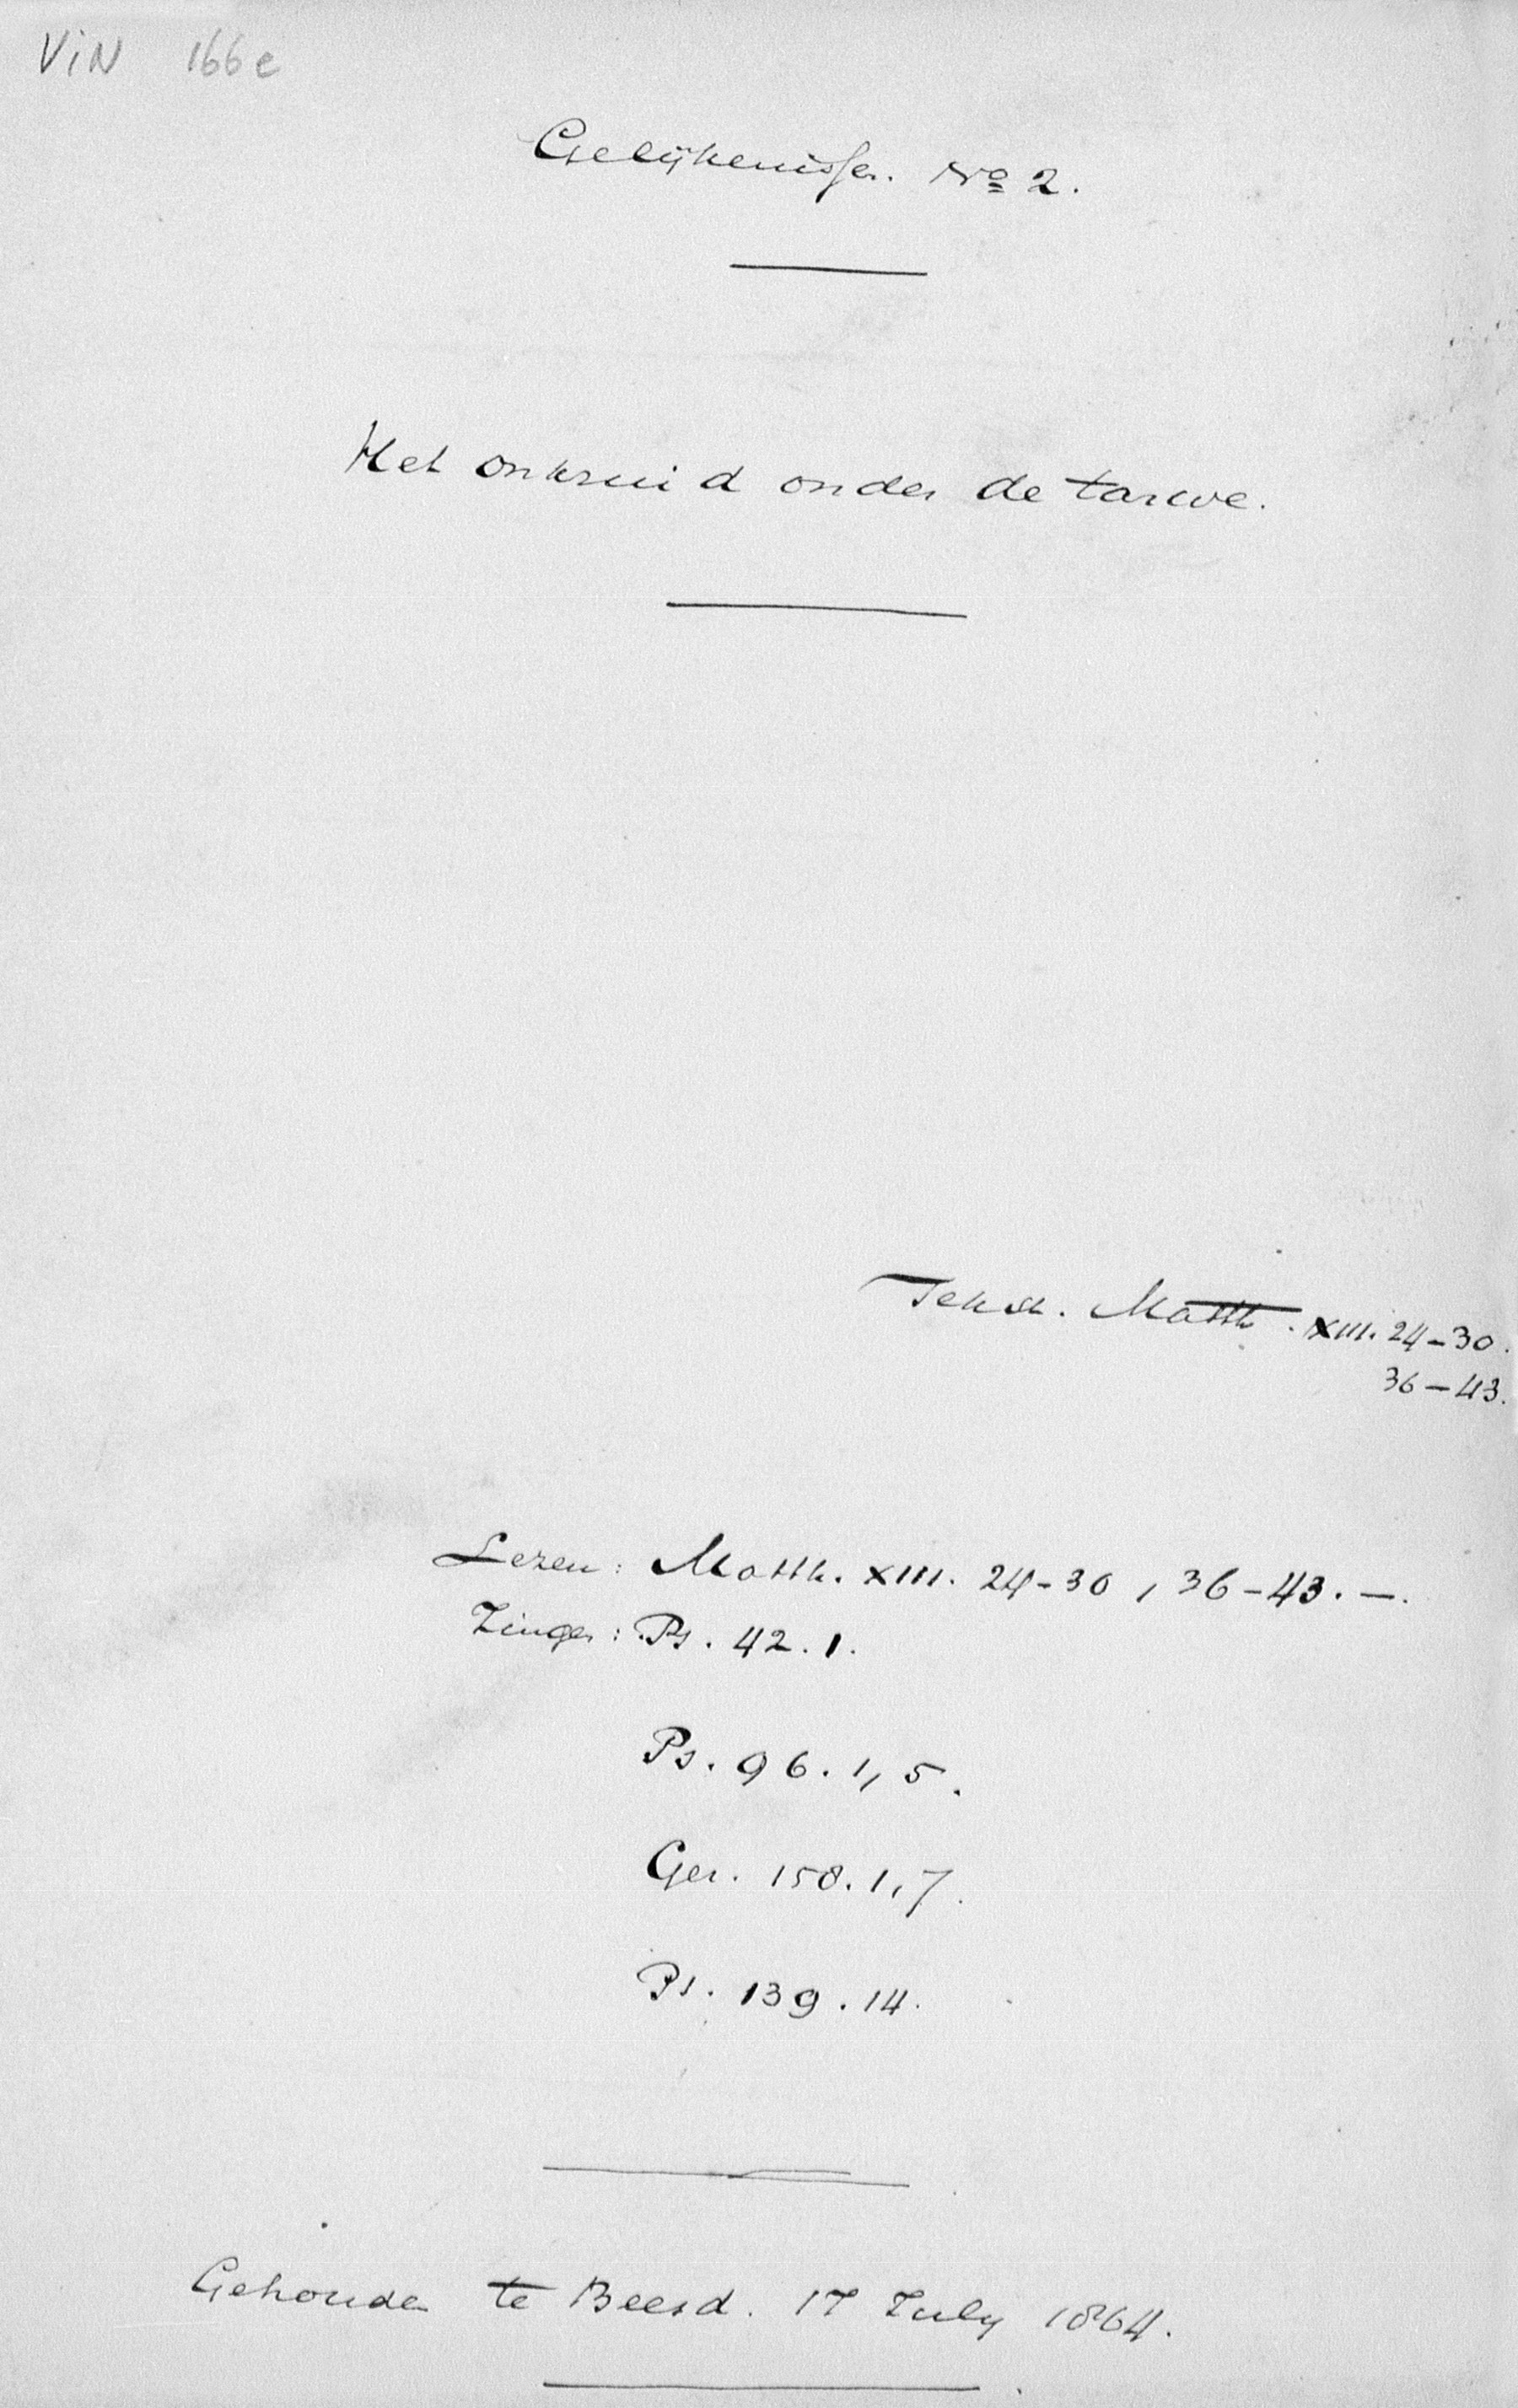 ViN 166e
Gelijkenissen. No 2.
Het onkruid onder de tarwe.
Tekst. Matth. XIII. 24-30.
36-43.
Lezen: Matth. XIII. 24-30, 36-43. —.
Zingen: Ps. 42. 1.
Ps. 96. 1, 5.
Gez. 158. 1, 7.
Ps. 139. 14.
Gehouden te Beesd. 17 July 1864.